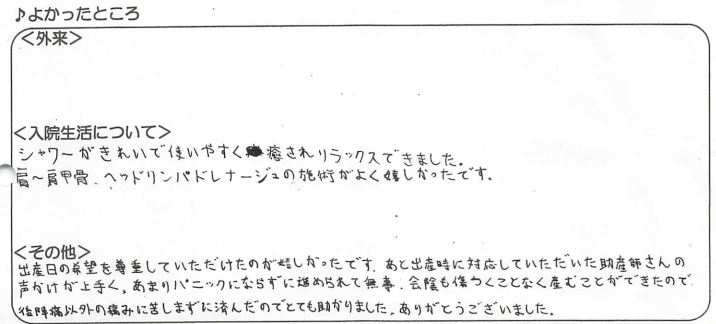 ♪よかったところ
＜外来＞
＜入院生活について＞
シャワーがきれいで使いやすく癒されリラックスできました。
肩〜肩甲骨、ヘッドリンパドレナージュの施術がよく嬉しかったです。
＜その他＞
出産日の希望を尊重していただけたのが嬉しかったです。あと出産時に対応していただいた助産師さんの
声かけが上手く、あまりパニックにならずに進められて無事、会陰も傷つくことなく産むことができたので
後陣痛以外の痛みに苦しまずに済んだのでとても助かりました。ありがとうございました。